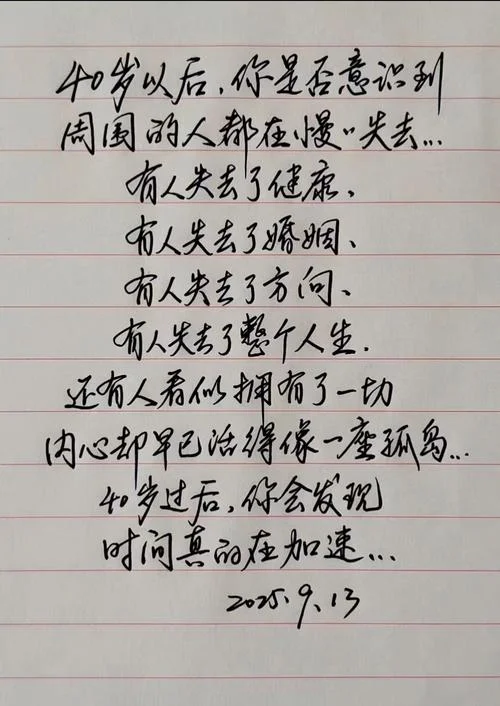 40岁以后,你是否意识到
周围的人都在慢〃失去...
有人失去了健康、
有人失去了婚姻、
有人失去了方向、
有人失去了整个人生.
还有人看似拥有了一切
内心却早已活得像一座孤岛...
40岁过后,你会发现
时间真的在加速...
2025.9.13